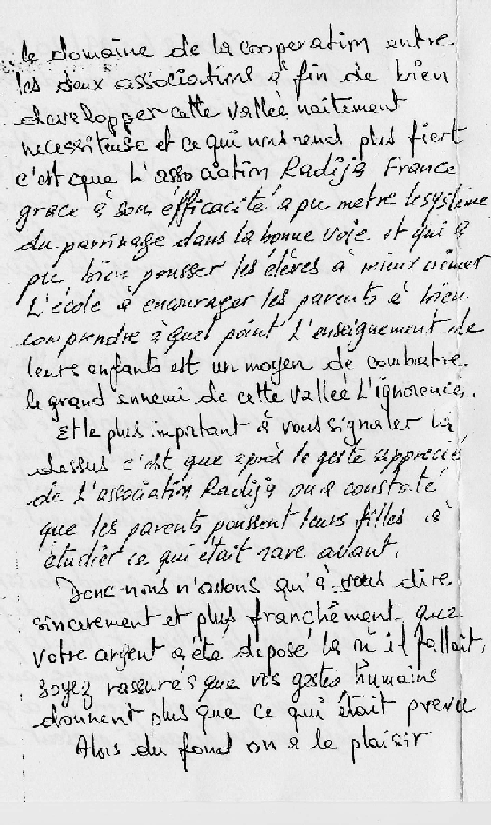 le domaine de la cooperation entre
les deux associations à fin de bien
developper cette vallée
necessiteuse et ce qui nous rend plus fiert
c'est cque L'association Radija France
grace à son éfficacité a pu metre le système
du parrinage dans la bonne voie et qui a
pu bien pousser les élèves à mieux aimer
L'école à encourager les parents à bien
comprendre à quel point L'enseignement de
leurs enfants est un moyen de combatre
le grand ennemi de cette vallée L'ignorence.
Et le plus important à vous signaler là
dessus c'est que après le geste apprecié
de L'association Radija on a constaté
que les parents poussent leurs filles à
étudier ce qui était rare avant.
Donc nous n'avons qu'à vous dire
sincerement et plus franchêment que
votre argent a été déposé là où il fallait,
soyez rassurés que vos gestes humains
donnent plus que ce qui était prevu
Alors du fond on a le plaisir